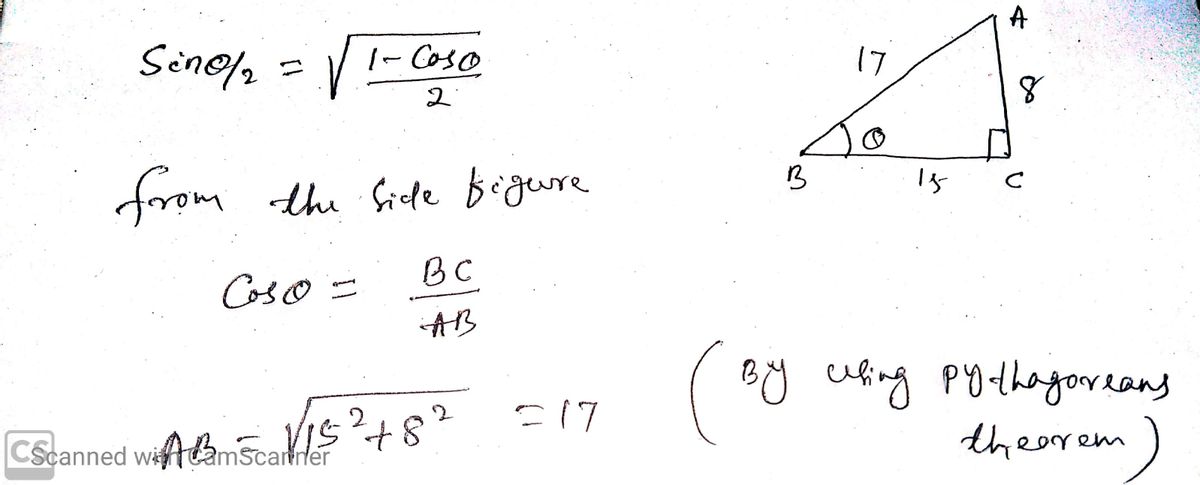 Sinθ/2 = √(1-Cosθ)/2
A
17
8
θ
B
15
C
from the side figure
Cosθ = BC/AB
AB = √15²+8² = 17
(By using pythagoreans
theorem)
CS Scanned with CamScanner